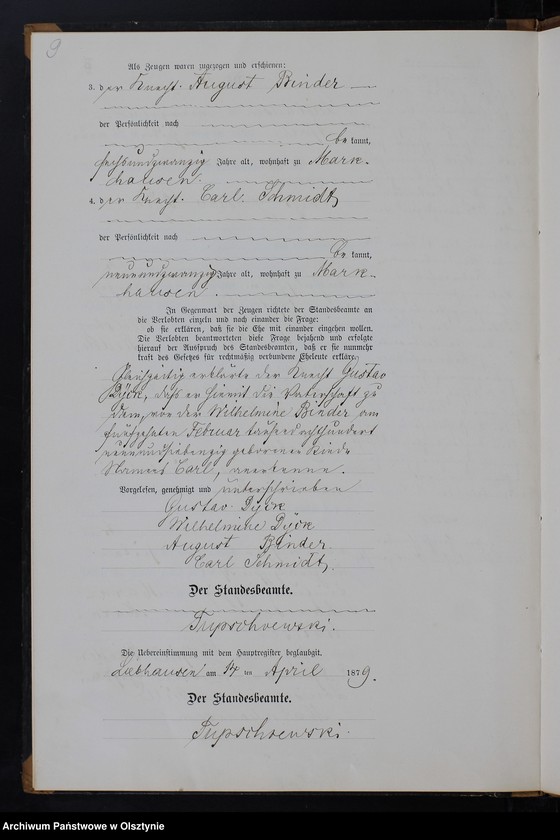 9
Als Zeugen waren zugezogen und erschienen:
3. der Knecht August Binder
der Persönlichkeit nach
be kannt,
sechsundzwanzig Jahre alt, wohnhaft zu Mark-
hausen.
4. der Knecht Carl Schmidt
der Persönlichkeit nach
be kannt,
neunundzwanzig Jahre alt, wohnhaft zu Mark-
hausen.
In Gegenwart der Zeugen richtete der Standesbeamte an
die Verlobten einzeln und nach einander die Frage:
ob sie erklären, daß sie die Ehe mit einander eingehen wollen.
Die Verlobten beantworteten diese Frage bejahend und erfolgte
hierauf der Ausspruch des Standesbeamten, daß er sie nunmehr
kraft des Gesetzes für rechtmäßig verbundene Eheleute erkläre.
Gleichzeitig erklärte der Knecht Gustav
Dyck, daß er hiermit die Vaterschaft zu
dem, von der Wilhelmine Binder am
fünfzehnten Februar tausend achthundert
neunundsiebenzig geborenen Kinde
Namens Carl, anerkenne.
Vorgelesen, genehmigt und unterschrieben
Gustav Dyck
Wilhelmine Dyck
August Binder
Carl Schmidt
Der Standesbeamte.
Die Uebereinstimmung mit dem Hauptregister beglaubigt.
am 14 ten April 1879.
Der Standesbeamte.
Archiwum Państwowe w Olsztynie